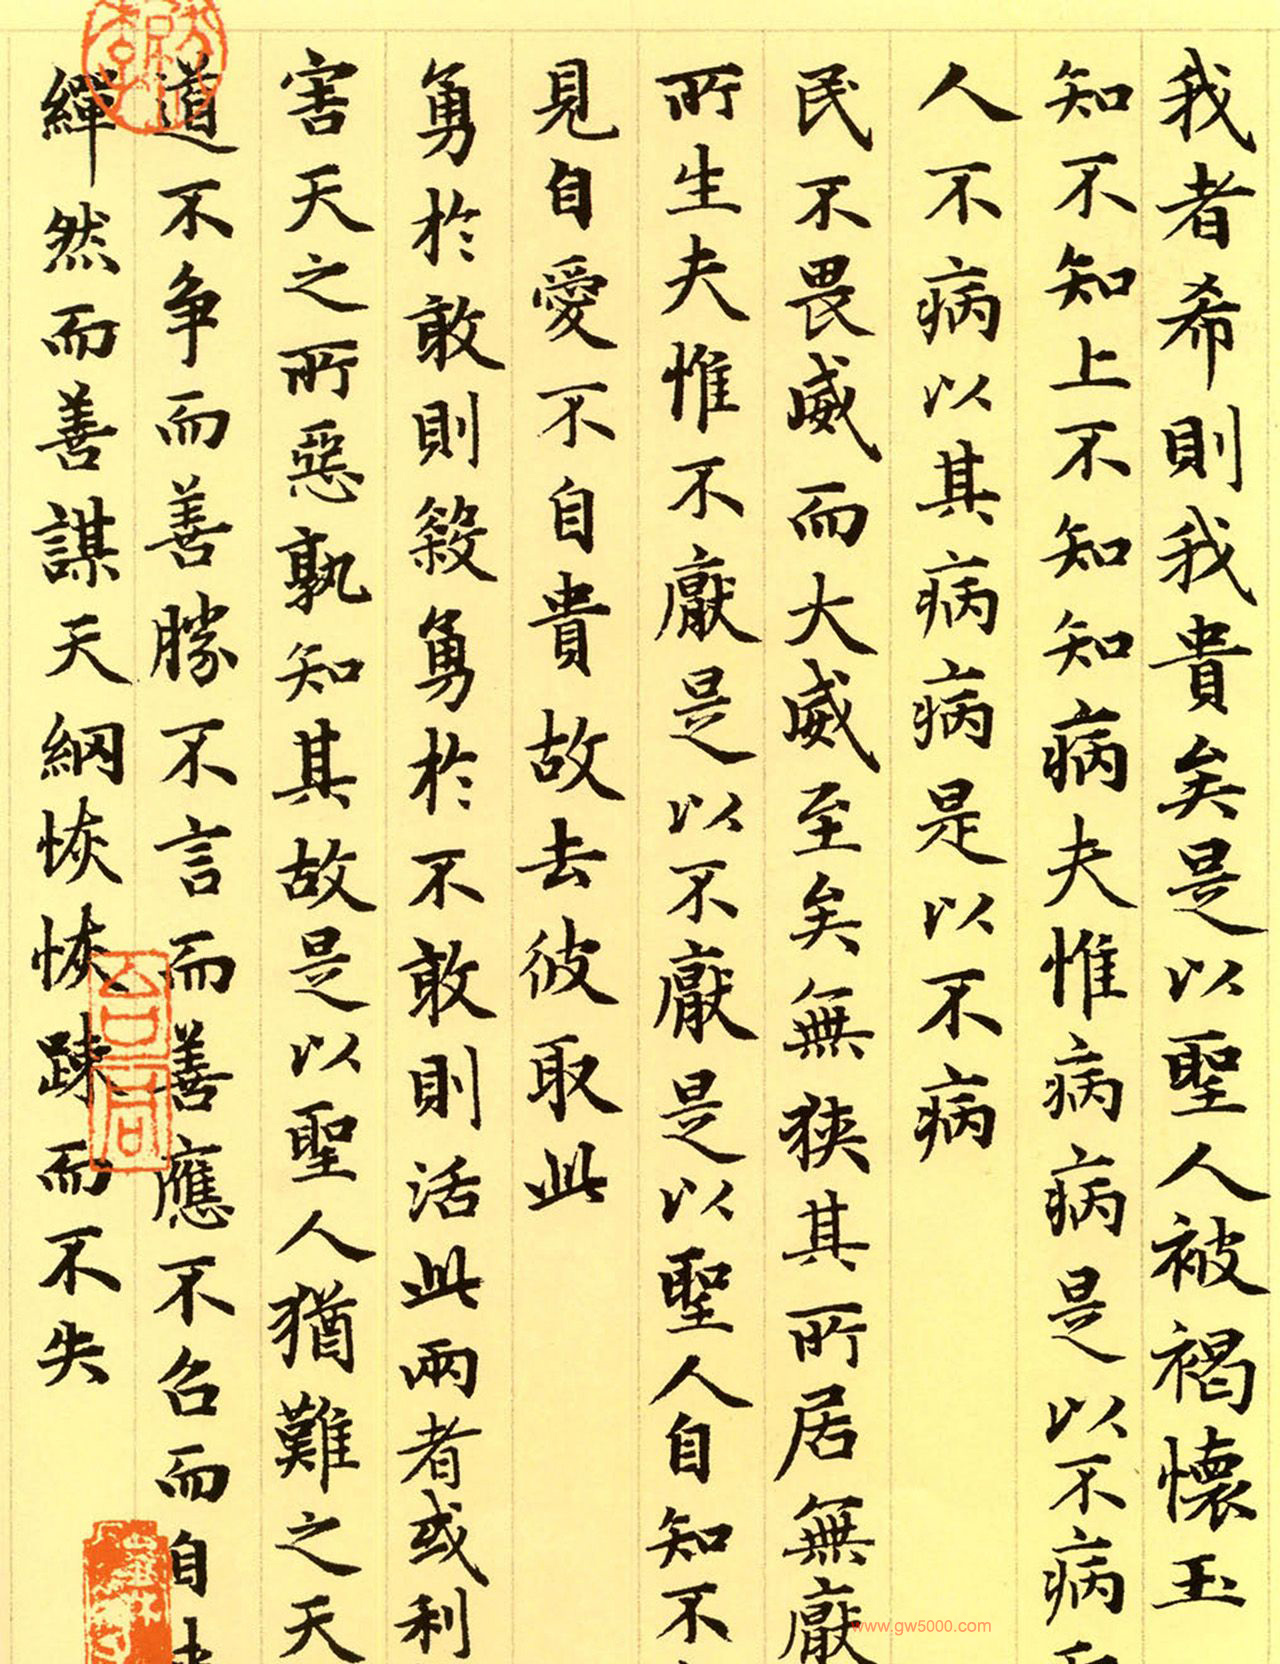 我者希則我貴矣是以聖人被褐懷玉
知不知上不知知病夫惟病病是以不病
人不病以其病病是以不病
民不畏威而大威至矣無狹其所居無厭
所生夫惟不厭是以不厭是以聖人自知不
見自愛不自貴故去彼取此
勇於敢則殺勇於不敢則活此兩者或利
害天之所惡孰知其故是以聖人猶難之天
道不争而善勝不言而善應不召而自
繟然而善謀天網恢恢踈而不失
www.gw5000.com